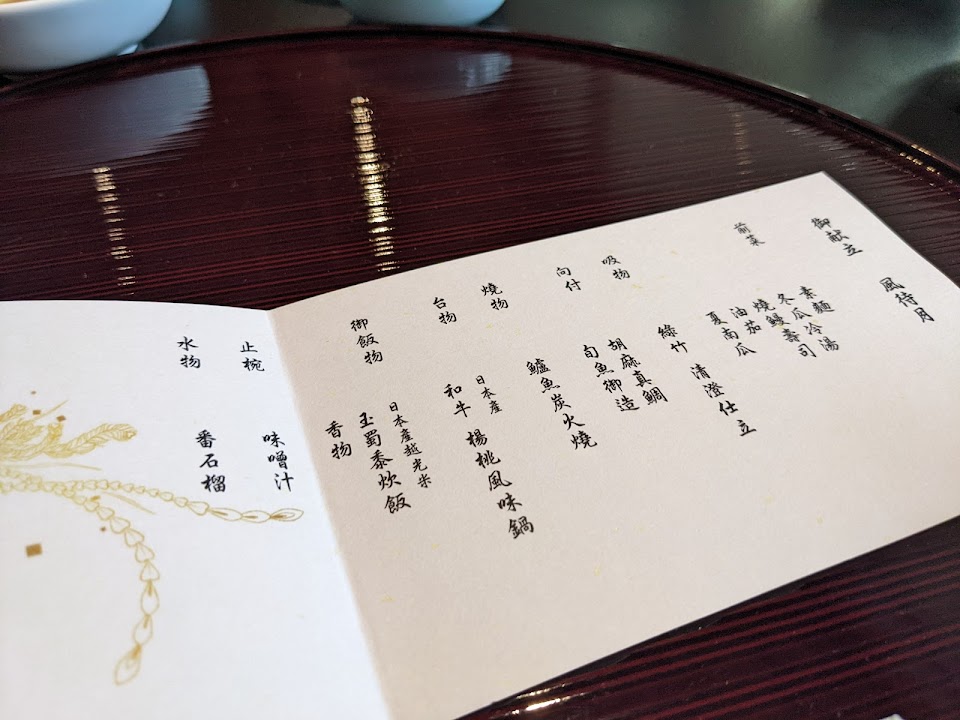 御献立
風待月
前菜
素麵
冬瓜冷湯
燒鰻壽司
油茄
夏南瓜
吸物
綠竹 清澄仕立
向付
胡麻真鯛
旬魚御造
燒物
鱸魚炭火燒
台物
日本産
和牛 楊桃風味鍋
御飯物
日本産越光米
玉蜀黍炊飯
香物
止椀
味噌汁
水物
番石榴